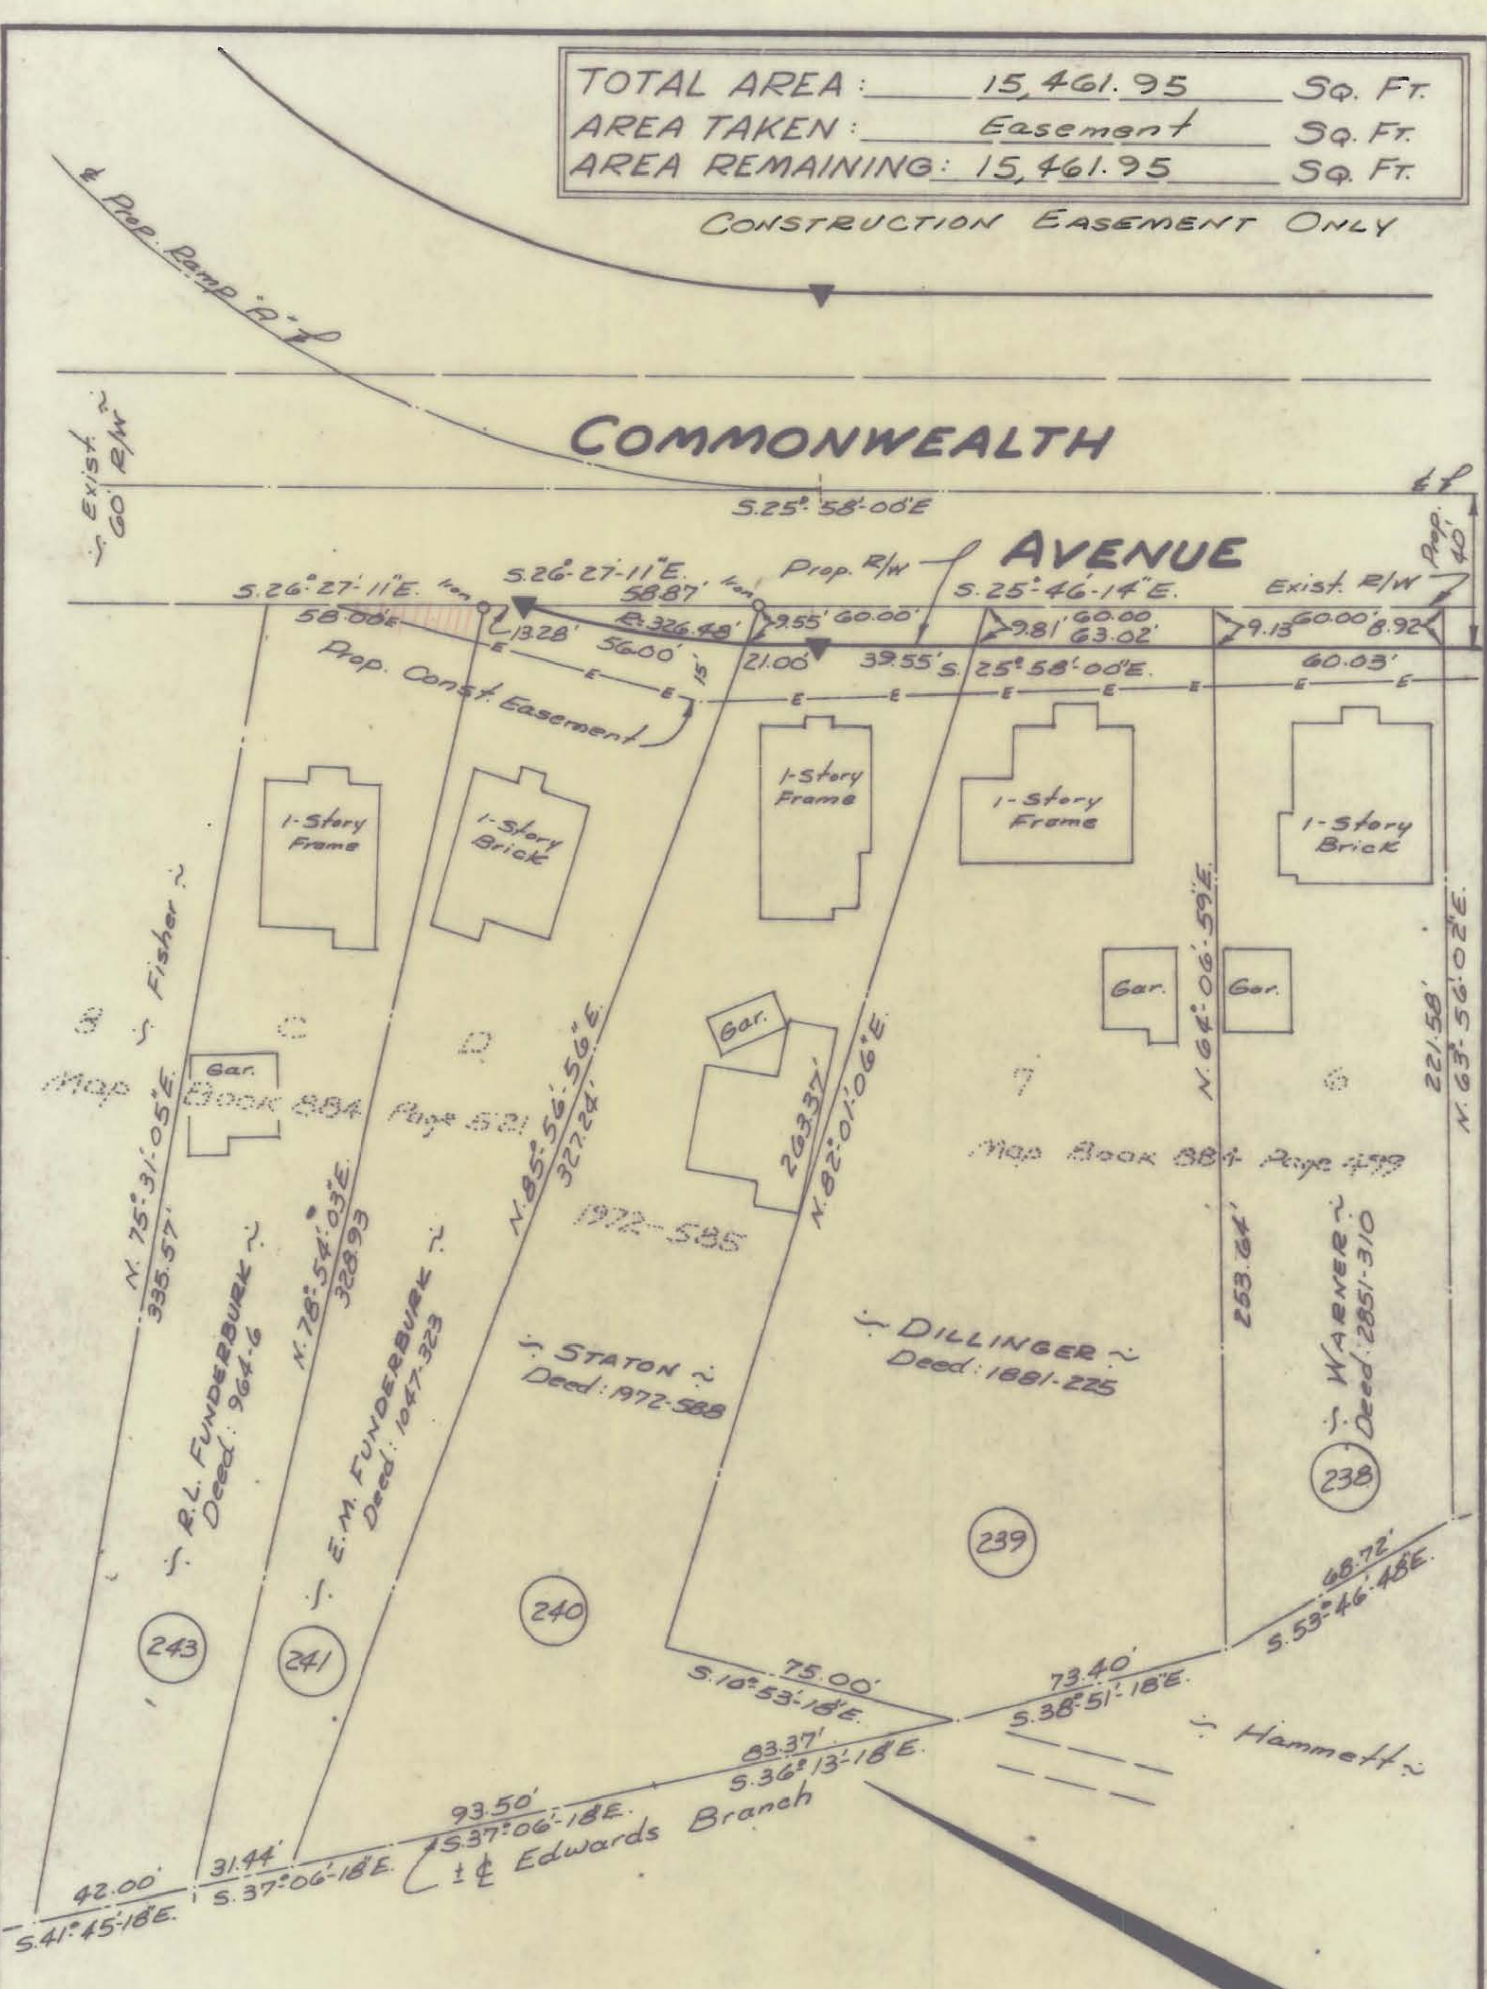 TOTAL AREA: 15,461.95 SQ. FT.
AREA TAKEN: Easement SQ. FT.
AREA REMAINING: 15,461.95 SQ. FT.
CONSTRUCTION EASEMENT ONLY
℄ Prop. Ramp "A"
Exist.
60' R/W
COMMONWEALTH
S.25°-58'-00"E
AVENUE
Prop.
40'
S.26°-27'-11"E.
Iron
S.26°-27'-11"E.
58.87'
Iron
Prop. R/W
S.25°-46'-14"E.
Exist. R/W
58.00'
13.28'
R=326.48'
56.00'
9.55'
60.00'
9.81'
60.00
63.02'
9.13
60.00'
8.92
15'
21.00'
39.55'
S.25°58'-00"E.
60.03'
Prop. Const. Easement
E E E E E E E E E
1-Story
Frame
1-Story
Brick
1-Story
Frame
1-Story
Frame
1-Story
Brick
Fisher
Gar.
Gar.
Gar.
Gar.
B C D
7
6
Map Book 884 Page 521
Map Book 884 Page 499
1972-585
N. 75°-31'-05"E.
335.57'
N. 78°-54'-03"E.
328.93
N. 85°-56'-56"E.
327.24'
263.37'
N. 82°-01'-06"E.
N. 64°-06'-59"E.
253.64'
221.58'
N. 63°-56'-02"E.
R.L. FUNDERBURK
Deed: 964-6
E.M. FUNDERBURK
Deed: 1047-323
STATON
Deed: 1972-588
DILLINGER
Deed: 1881-225
WARNER
Deed: 2851-310
238
239
240
241
243
68.72'
S.53°-46'-48"E.
75.00'
S.10°-53'-18"E.
73.40'
S.38°-51'-18"E.
Hammett
83.37'
S.36°-13'-18"E.
93.50'
S.37°-06'-18"E.
± ℄ Edwards Branch
31.44'
S.37°-06'-18"E.
42.00'
S.41°-45'-18"E.